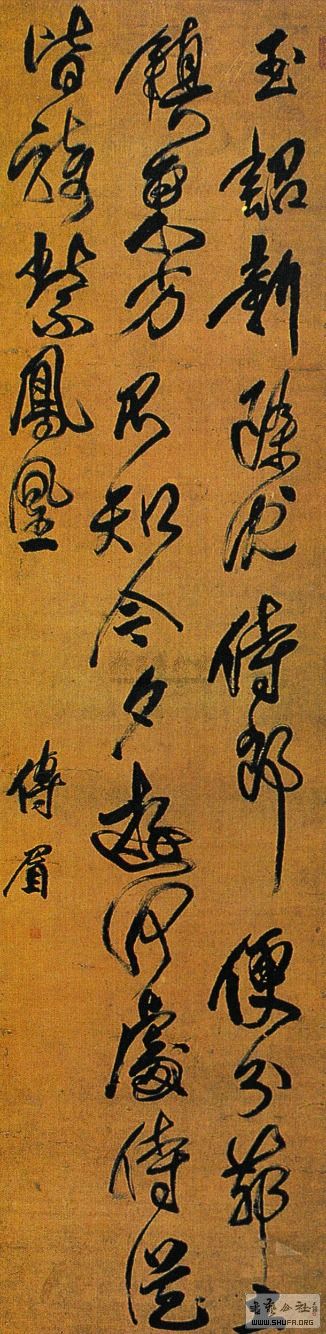 玉詔新除沈侍郎便分茅土
鎮東方不知今夕遊何處侍從
皆騎紫鳳凰
傅眉
書藝公社
WWW.SHUFA.ORG